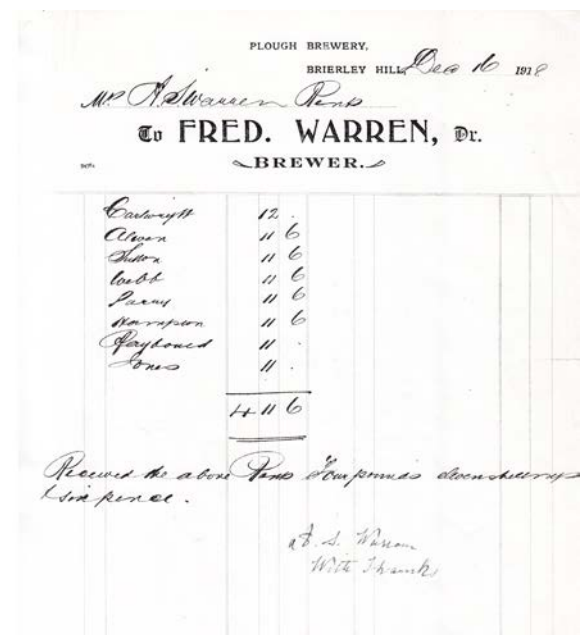 PLOUGH BREWERY,
BRIERLEY HILL, Dec 16 1918
Mr A. S. Warren Rents
To FRED. WARREN, Dr.
BREWER.
Cartwright 12 .
11 6
Sutton 11 6
Webb 11 6
Parry 11 6
Hampson 11 6
Raybould 11 .
Jones 11 .
4 11 6
Received the above Rents Four pounds eleven shillings
& six pence.
A. S. Warren
With Thanks